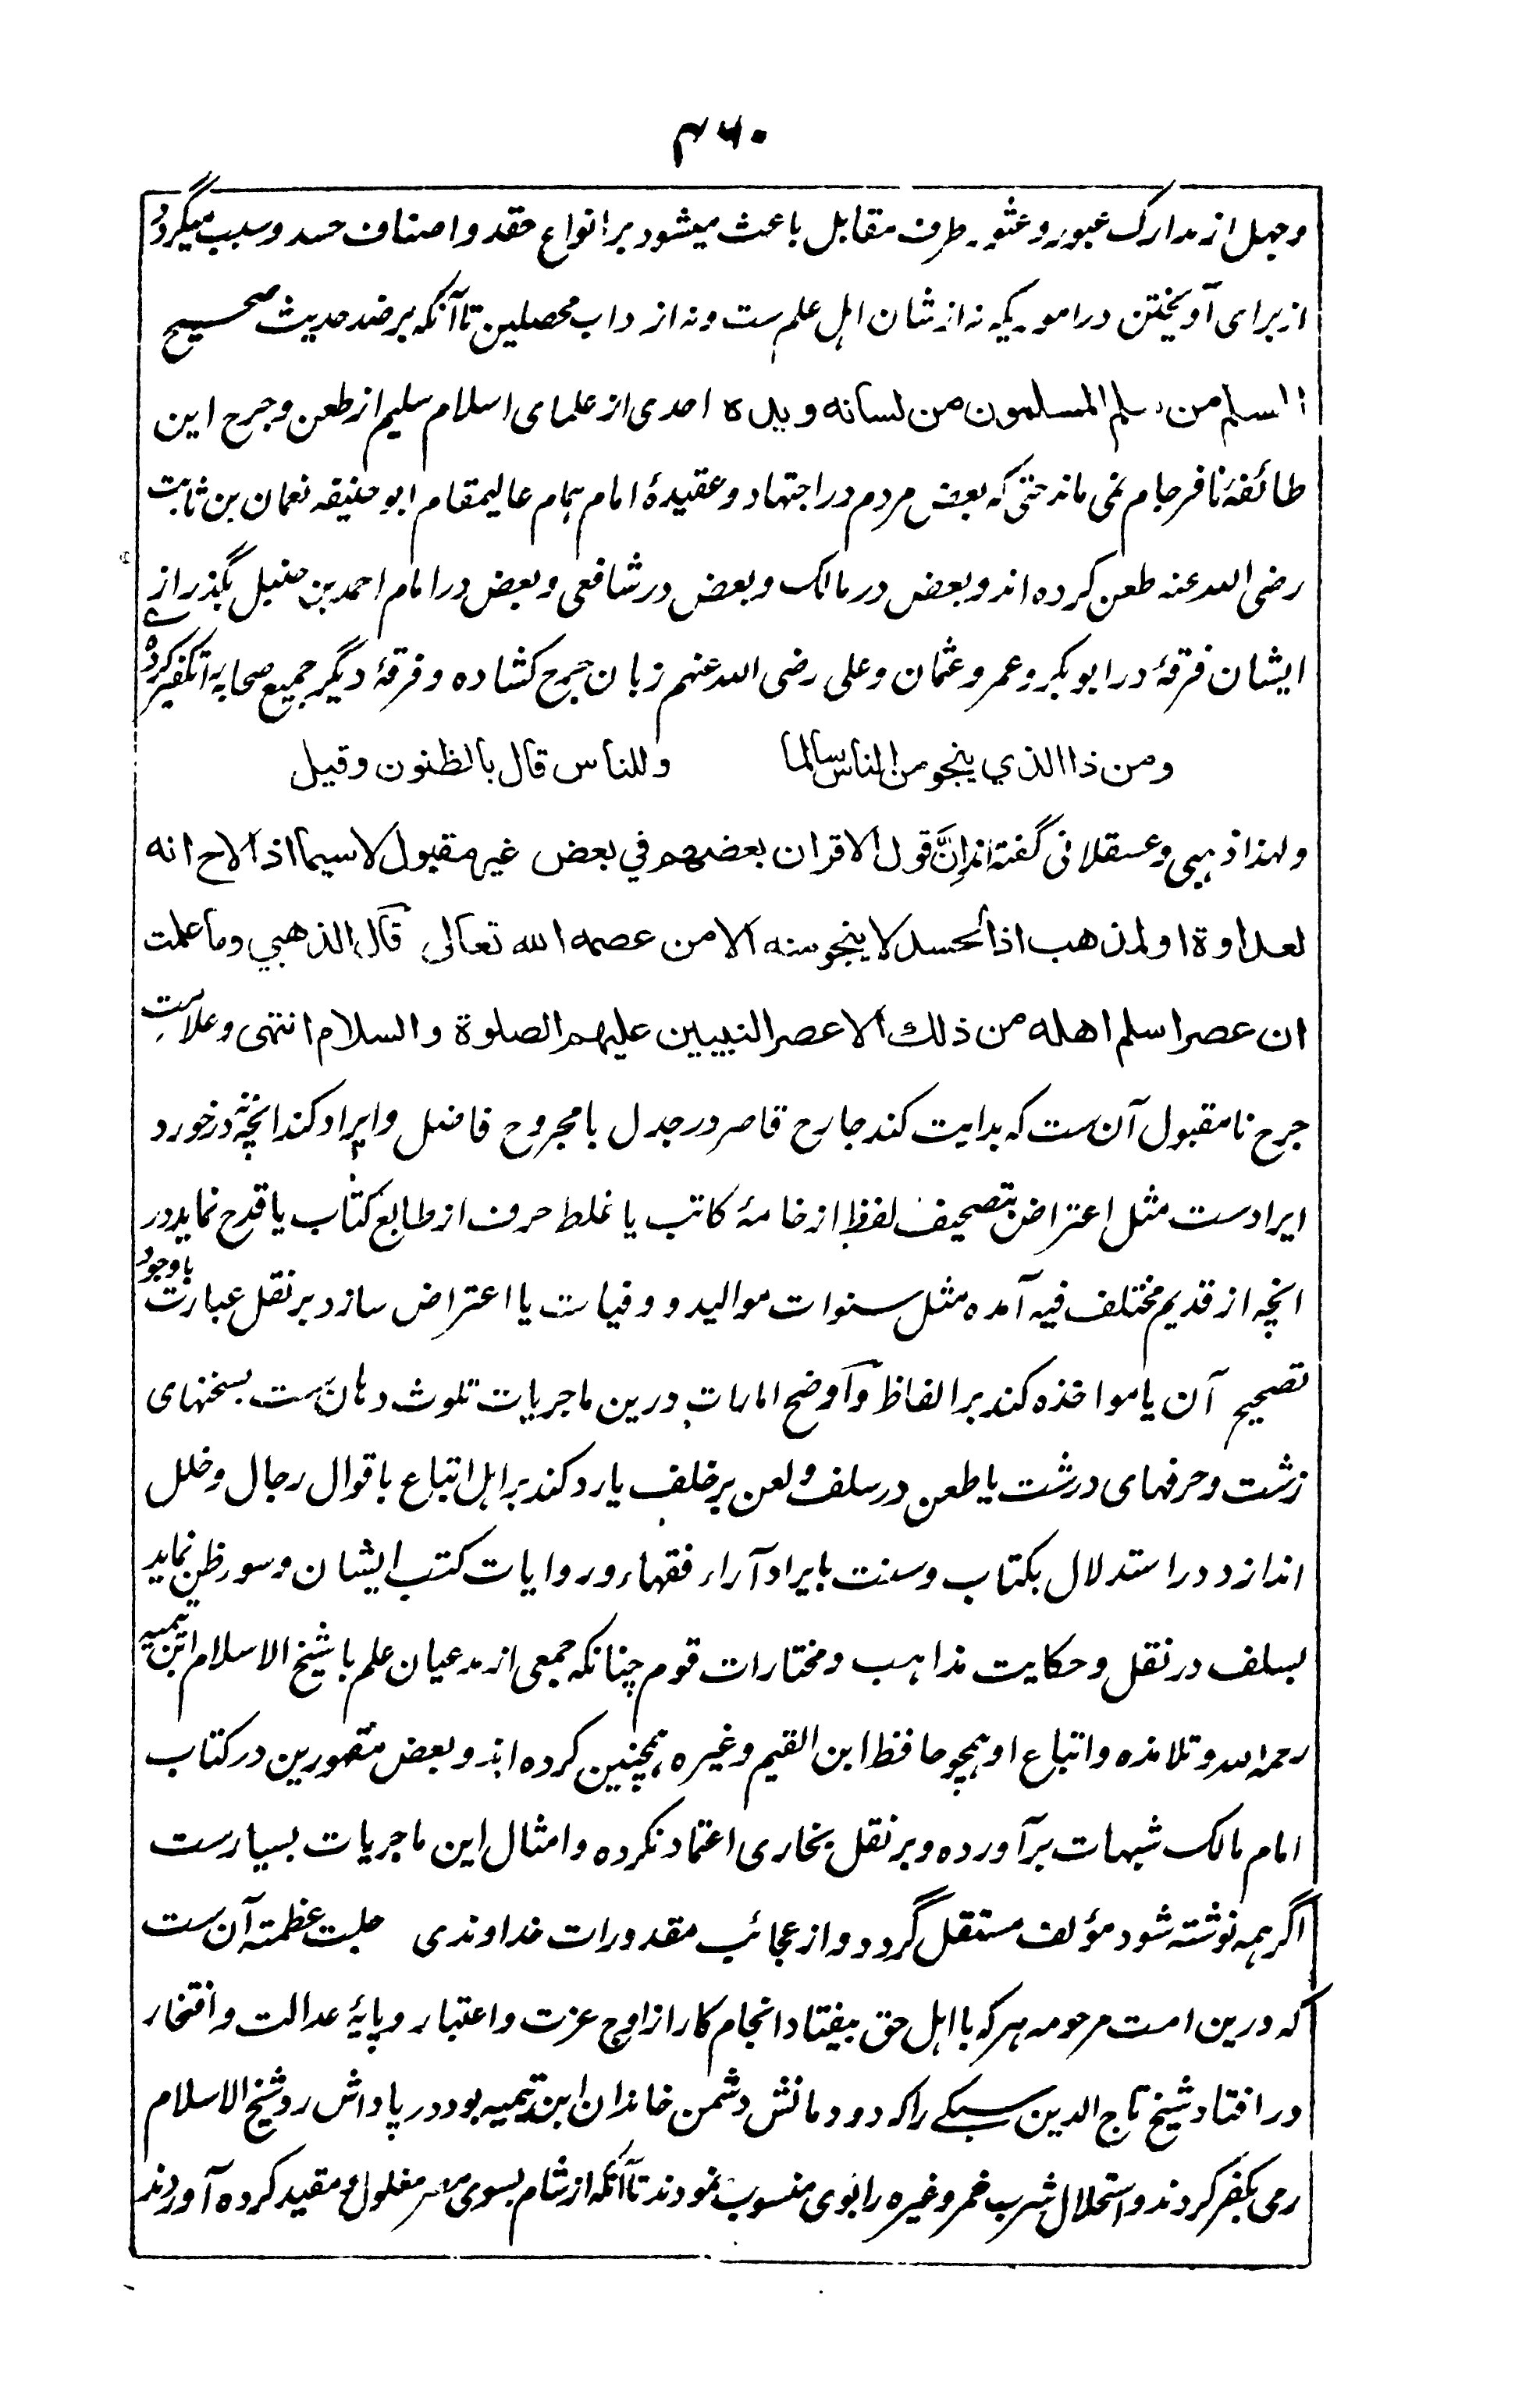 ۴۶۰
وجهل از مدارک عبور و عثور طرف مقابل باعث میشود بر انواع حقد و اصناف حسد و سبب میگردد
از برای آویختن در اموریکه نه از شان اہل علم ست و نه از داب محصلین تا آنکه بر ضد حدیث صحیح
المسلم من سلم المسلمون من لسانه ویده احدی از علمای اسلام سلیم از طعن و جرح این
طائفهٔ نافرجام نمی ماند حتی که بعض مردم در اجتهاد و عقیدهٔ امام ہمام عالیمقام ابو حنیفه نعمان بن ثابت
رضی الله عنه طعن کرده اند و بعض در مالک و بعض در شافعی و بعض در امام احمد بن حنبل بگذر از
ایشان فرقهٔ در ابوبکر و عمر و عثمان و علی رضی الله عنهم زبان جرح کشاده و فرقهٔ دیگر جمیع صحابه را تکفیر کرده
ومن ذا الذي ينجو من الناس سالما وللناس قال بالظنون وقيل
ولهذا ذہبی و عسقلانی گفته اند إنَّ قول الاقران بعضهم في بعض غير مقبول لاسيما اذا لاح انه
لعداوة او لمذهب اذ الحسد لا ينجو منه الا من عصمه الله تعالى قال الذهبي وما علمت
ان عصرا سلم اهله من ذلك الا عصر النبيين عليهم الصلوة والسلام انتهى و علامت
جرح نامقبول آن ست که بدایت کند جارح قاصر در جدل با مجروح فاضل و ایراد کند انچه نه در خورد
ایرادست مثل اعتراض بتصحیف لفظ از خامهٔ کاتب یا غلط حرف از طابع کتاب یا قدح نماید در
انچه از قدیم مختلف فیه آمده مثل سنوات موالید و وفیات یا اعتراض سازد بر نقل عبارت باوجود
تصحیح آن یا مواخذه کند بر الفاظ و اوضح امارات درین ماجریات تلوث دہان ست بسخنهای
زشت و حرفهای درشت یا طعن در سلف و لعن بر خلف یا رد کند بر اہل اتباع باقوال رجال و خلل
اندازد در استدلال بکتاب و سنت بایراد آراء فقهاء و روایات کتب ایشان و سوء ظن نماید
بسلف در نقل و حکایت مذاہب و مختارات قوم چنانکه جمعی از مدعیان علم با شیخ الاسلام ابن تیمیه
رحمه الله و تلامذه و اتباع او ہمچو حافظ ابن القیم وغیره ہمچنین کرده اند و بعض متهورین در کتاب
امام مالک شبهات برآورده و بر نقل بخاری اعتماد نکرده و امثال این ماجریات بسیارست
اگر ہمه نوشته شود مؤلف مستقل گردد و از عجائب مقدورات خداوندی جلت عظمته آن ست
که درین امت مرحومه ہر که با اہل حق بیفتاد انجام کار از اوج عزت و اعتبار و پایهٔ عدالت و افتخار
در افتاد شیخ تاج الدین سبکے را که دودمانش دشمن خاندان ابن تیمیه بود در پاداش رد شیخ الاسلام
رمی بکفر کردند و استحلال شرب خمر وغیره را بوی منسوب نمودند تا آنکه از شام بسوی مصر مغلول و مقید کرده آوردند